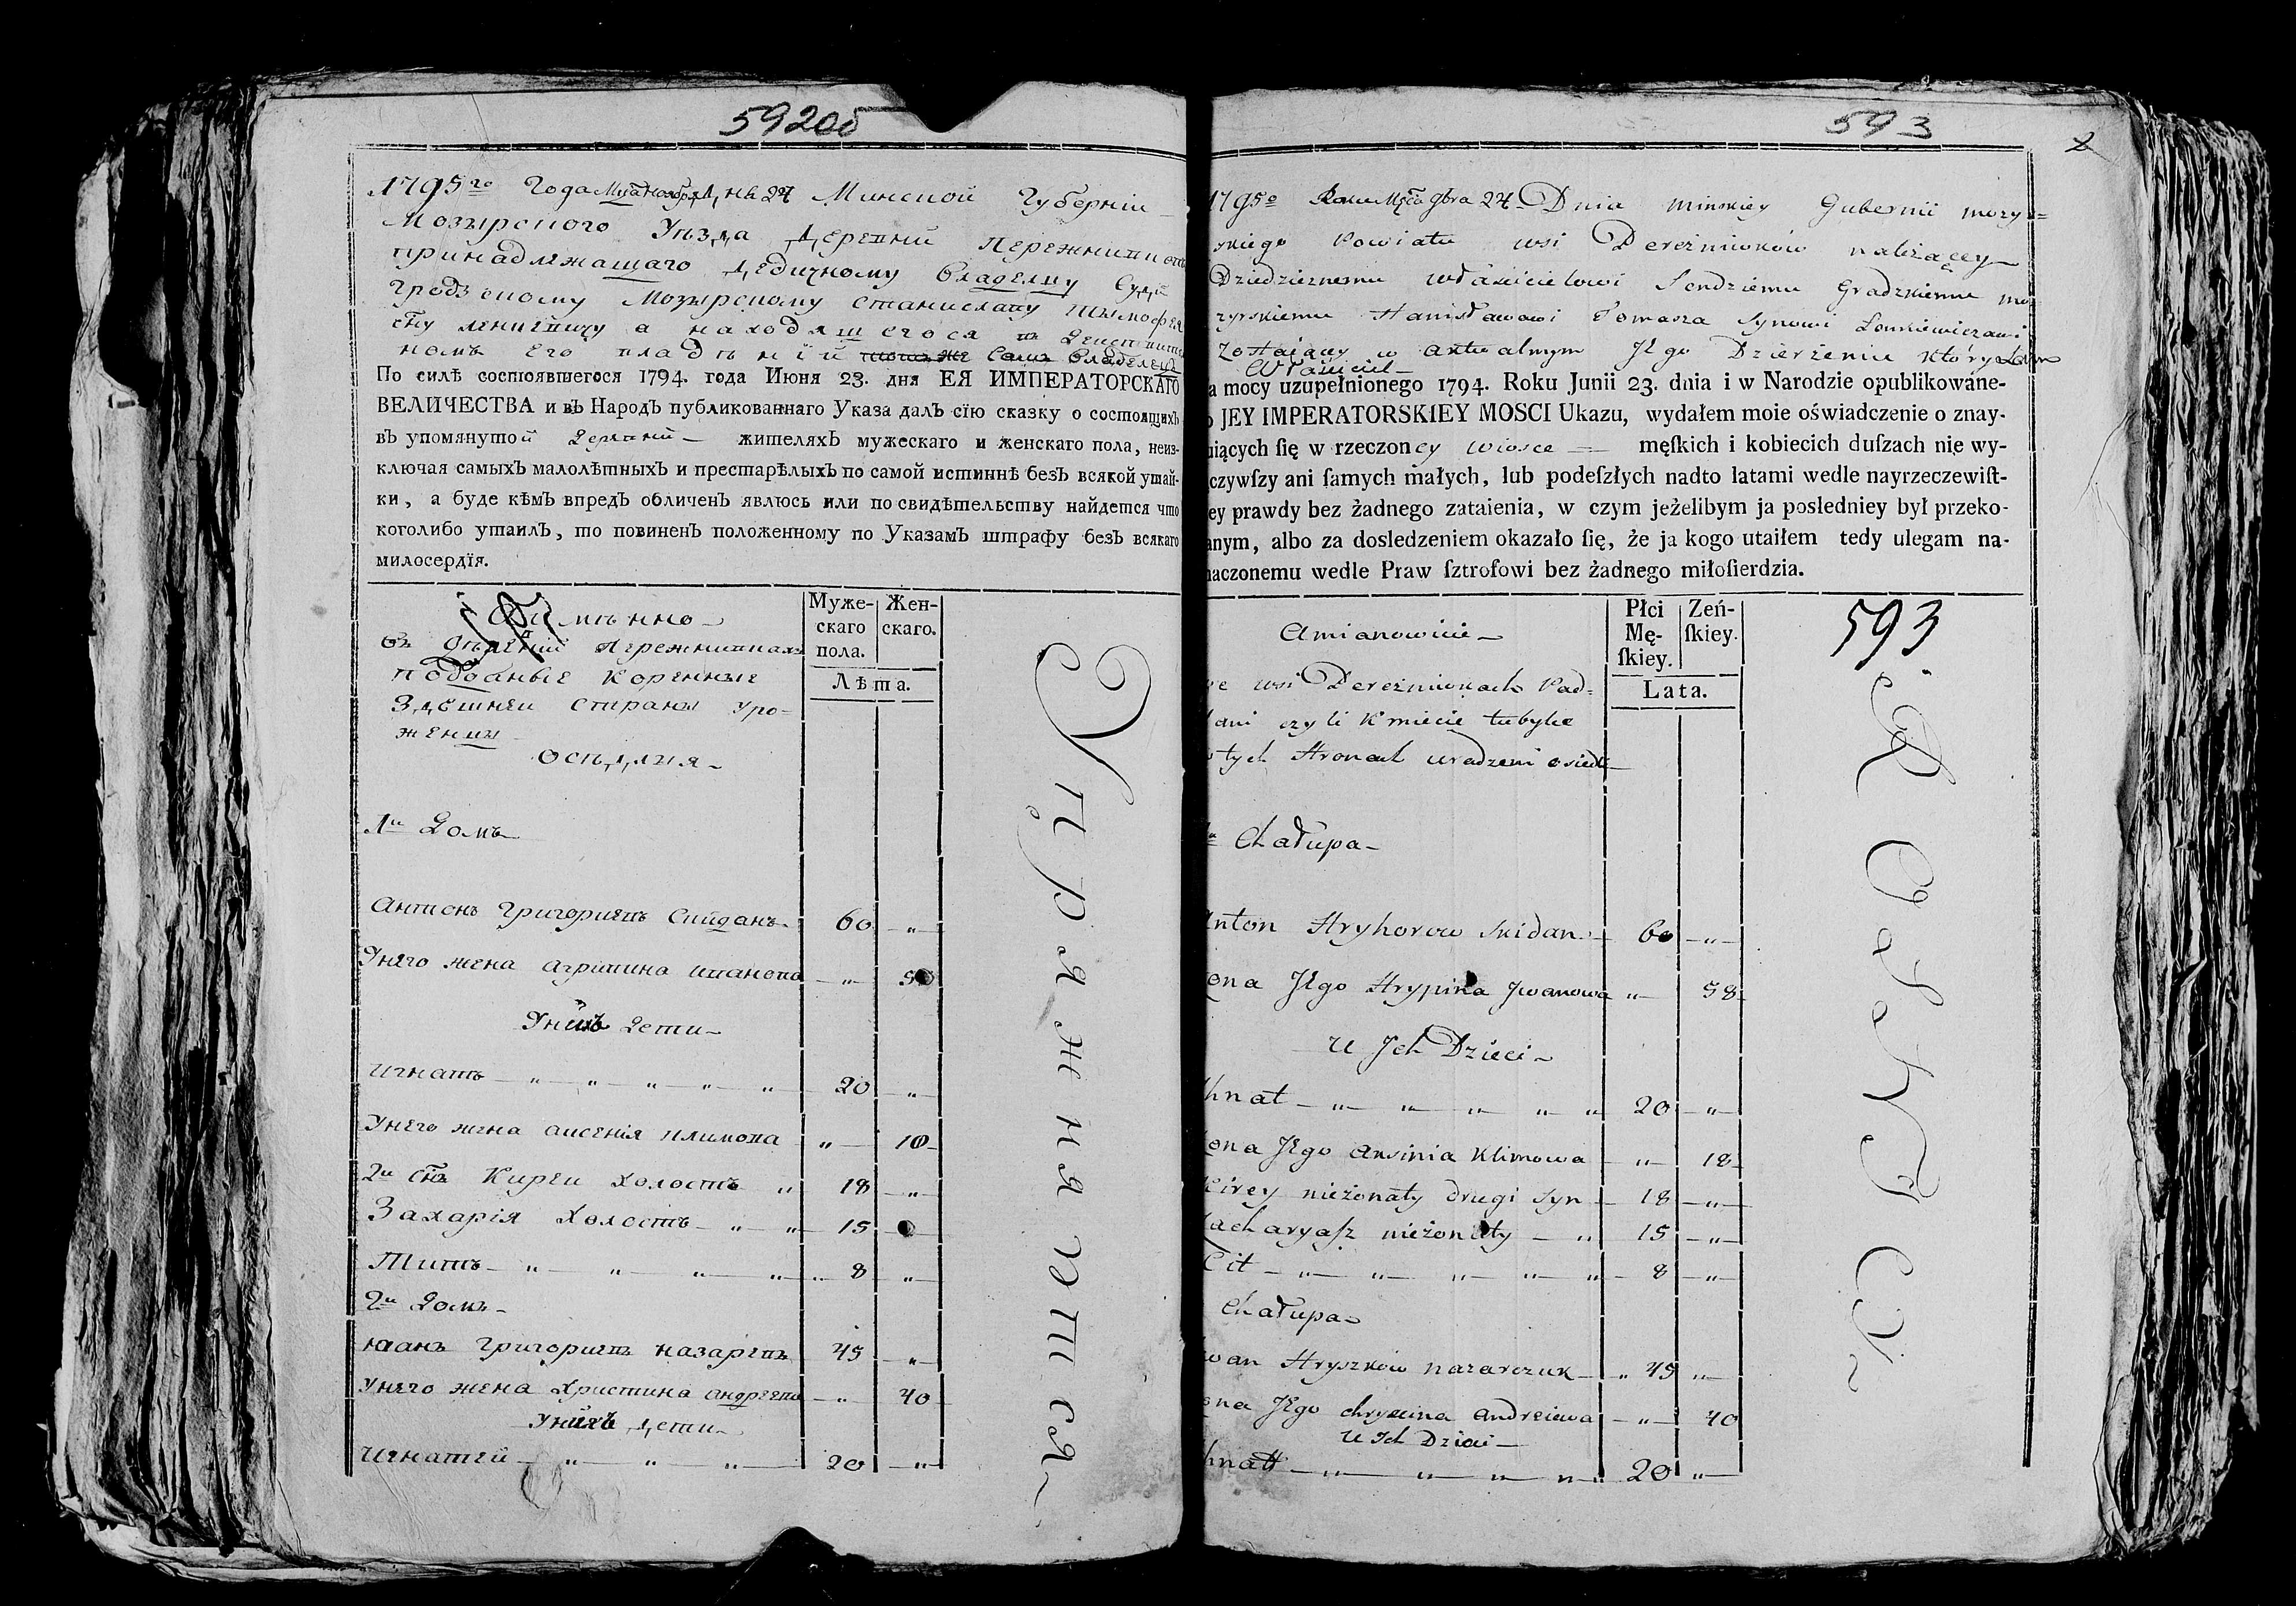 592об
1795го Года Мца Ноября Дня 24 Минской Губерніи
Мозырского Уѣзда Деревни Дережниковъ
принадлежащаго дедичному Владелцу Судіи
гродзскому Мозырскому Станиславу
сну Ленкевичу а находящегося въ Действител
номъ Его владѣніи Самъ Владелецъ
По силѣ состоявшегося 1794. года Июня 23. дня ЕЯ ИМПЕРАТОРСКАГО
ВЕЛИЧЕСТВА и въ Народъ публикованнаго Указа далъ сїю сказку о состоящихъ
въ упомянутой Деревни жителяхъ мужескаго и женскаго пола, неиз-
ключая самыхъ малолѣтныхъ и престарѣлыхъ по самой истиннѣ безъ всякой утай-
ки, а буде кѣмъ впредь обличенъ явлюсь или по свидѣтельству найдется что
коголибо утаилъ, то повиненъ положенному по Указамъ штрафу безъ всякаго
милосердїя.
Имѣнно
въ Деревни Дережникахъ
подданые Коренные
Здешнеи Стираны Уро-
женцы
Оседлия
Муже-
скаго
пола.
Жен-
скаго.
Лѣта.
1й Домъ
Антонъ Григориевъ Скиданъ 60 "
Унего жена Агрипина Иванова " 58
Унихъ Дети
Игнатъ " " " " " 20 "
Унего жена Аксенія Климова " 18
2й снъ Кирей Холостъ " 18 "
Захарія Холостъ " " 15
Титъ " " " " " 8 "
2й Домъ
Иванъ Григориевъ Назаревъ 45 "
Унего жена Христина Андреева " 40
Унихъ Дети
Игнатей " " " 20 "
Упряжняется
593
2
1795o Roku Mca 9bra 24 Dnia Minskiey Gubernii Mozyr=
skiego Powiatu wsi Dereżnikow należącey
Dziedzicznemu właścicielowi Sendziemu Grodzkiemu Mo
zyrskiemu Stanisławowi Tomasza Synowi Lenkiewiczowi
zostaiący w aktualnym Jego Dzierżeniu który Sam
Właściciel
a mocy uzupełnionego 1794. Roku Junii 23. dnia i w Narodzie opublikowáne-
o JEY IMPERATORSKIEY MOSCI Ukazu, wydałem moie oświadczenie o znay-
uiących ſię w rzeczoney wiosce męſkich i kobiecich duſzach nie wy-
czywſzy ani ſamych małych, lub podeſzłych nadto latami wedle nayrzeczewiſt-
ey prawdy bez żadnego zataienia, w czym jeżelibym ja posledniey był przeko-
anym, albo za dosledzeniem okazało ſię, że ja kogo utaiłem tedy ulegam na-
naczonemu wedle Praw ſztrofowi bez żadnego miłoſierdzia.
Amianowicie
we wsi Dereżnikach Pod=
dani czyli Kmiecie tubylce
w tych Stronach urodzeni osiedli
Płci
Mę-
ſkiey.
Zeń-
ſkiey.
Lata.
593
Chałupa
Anton Hryhorow Skidan 60 "
ona Jego Hrypina Jwanowa " 58
U Jch Dzieci
hnat " " " " " 20 "
ona Jego Aksinia Klimowa " 18
Kirey nieżonaty drugi Syn 18 "
Zacharyaſz nieżonaty " 15 "
Cit " " " " " 8 "
Chałupa
wan Hryszkow Nazarczuk " 45 "
ona Jego Chrystina Andreiewa " 40
U Jch Dzieci
hnatt " " " " " 20 "